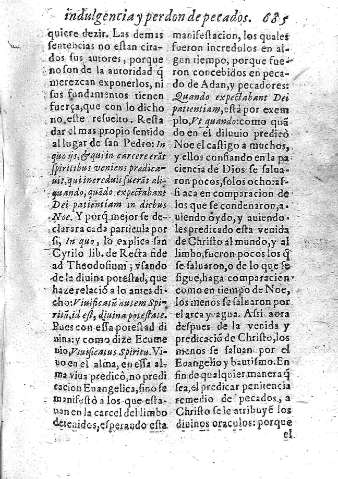 indulgencia y perdon de pecados. 685
quiere dezir. Las demas
sentencias no estan cita-
dos sus autores, porque
no son de la autoridad q̃
merezcan exponerlos, ni
sus fundamentos tienen
fuerça, que con lo dicho
no este resuelto. Resta
dar al mas propio sentido
al lugar de san Pedro: In
quo ijs, & qui in carcere erãt
spiritibus veniens predica-
uit, qui increduli fuerãt ali-
quando, quãdo expectabant
Dei patientiam in diebus
Noe. Y porq̃ mejor se de-
clarara cada particula por
si, In quo, lo explica san
Cyrilo lib. de Recta fide
ad Theodosium; vsando
de la diuina potestad, que
haze relació a lo antes di-
cho: Viuificatũ autem Spi-
ritũ, id est, diuina potestate.
Pues con essa potestad di
nina: y como dize Ecume
nio, Viuificatus Spiritu. Vi-
uo en el alma, en essa al-
ma viua predicò, no predi
cacion Euangelica, sino se
manifustò a los que esta-
uan en la carcel del limbo
detenidos, esperando esta
manifestacion, los quales
fueron incredulos en al-
gun tiempo, porque fue-
ron concebidos en peca-
do de Adan, y pecadores:
Quando expectabant Dei
patientiam, està por exem
plo, Vt quando: como quã-
do en el diluuio predicò
Noe el castigo a muchos,
y ellos confiando en la pa-
ciencia de Dios se salua-
ron pocos, solos ocho: as-
si aca en comparacion de
los que se condenaron, a-
uiendo òydo, y auiendo-
les predicado esta venida
de Christo al mundo, y al
limbo, fueron pocos los q̃
se saluaron, o de lo que se
sigue, haga comparacion
como en tiempo de Noe,
los menos se saluaron por
el arca y agua. Assi aora
despues de la venida y
predicaciõ de Christo, los
menos se saluan por el
Euangelio y bautismo. En
fin de qualquier manera q̃
sea, el predicar penitencia
remedio de pecados, a
Christo se le atribuyẽ los
diuinos oraculos: porque
el